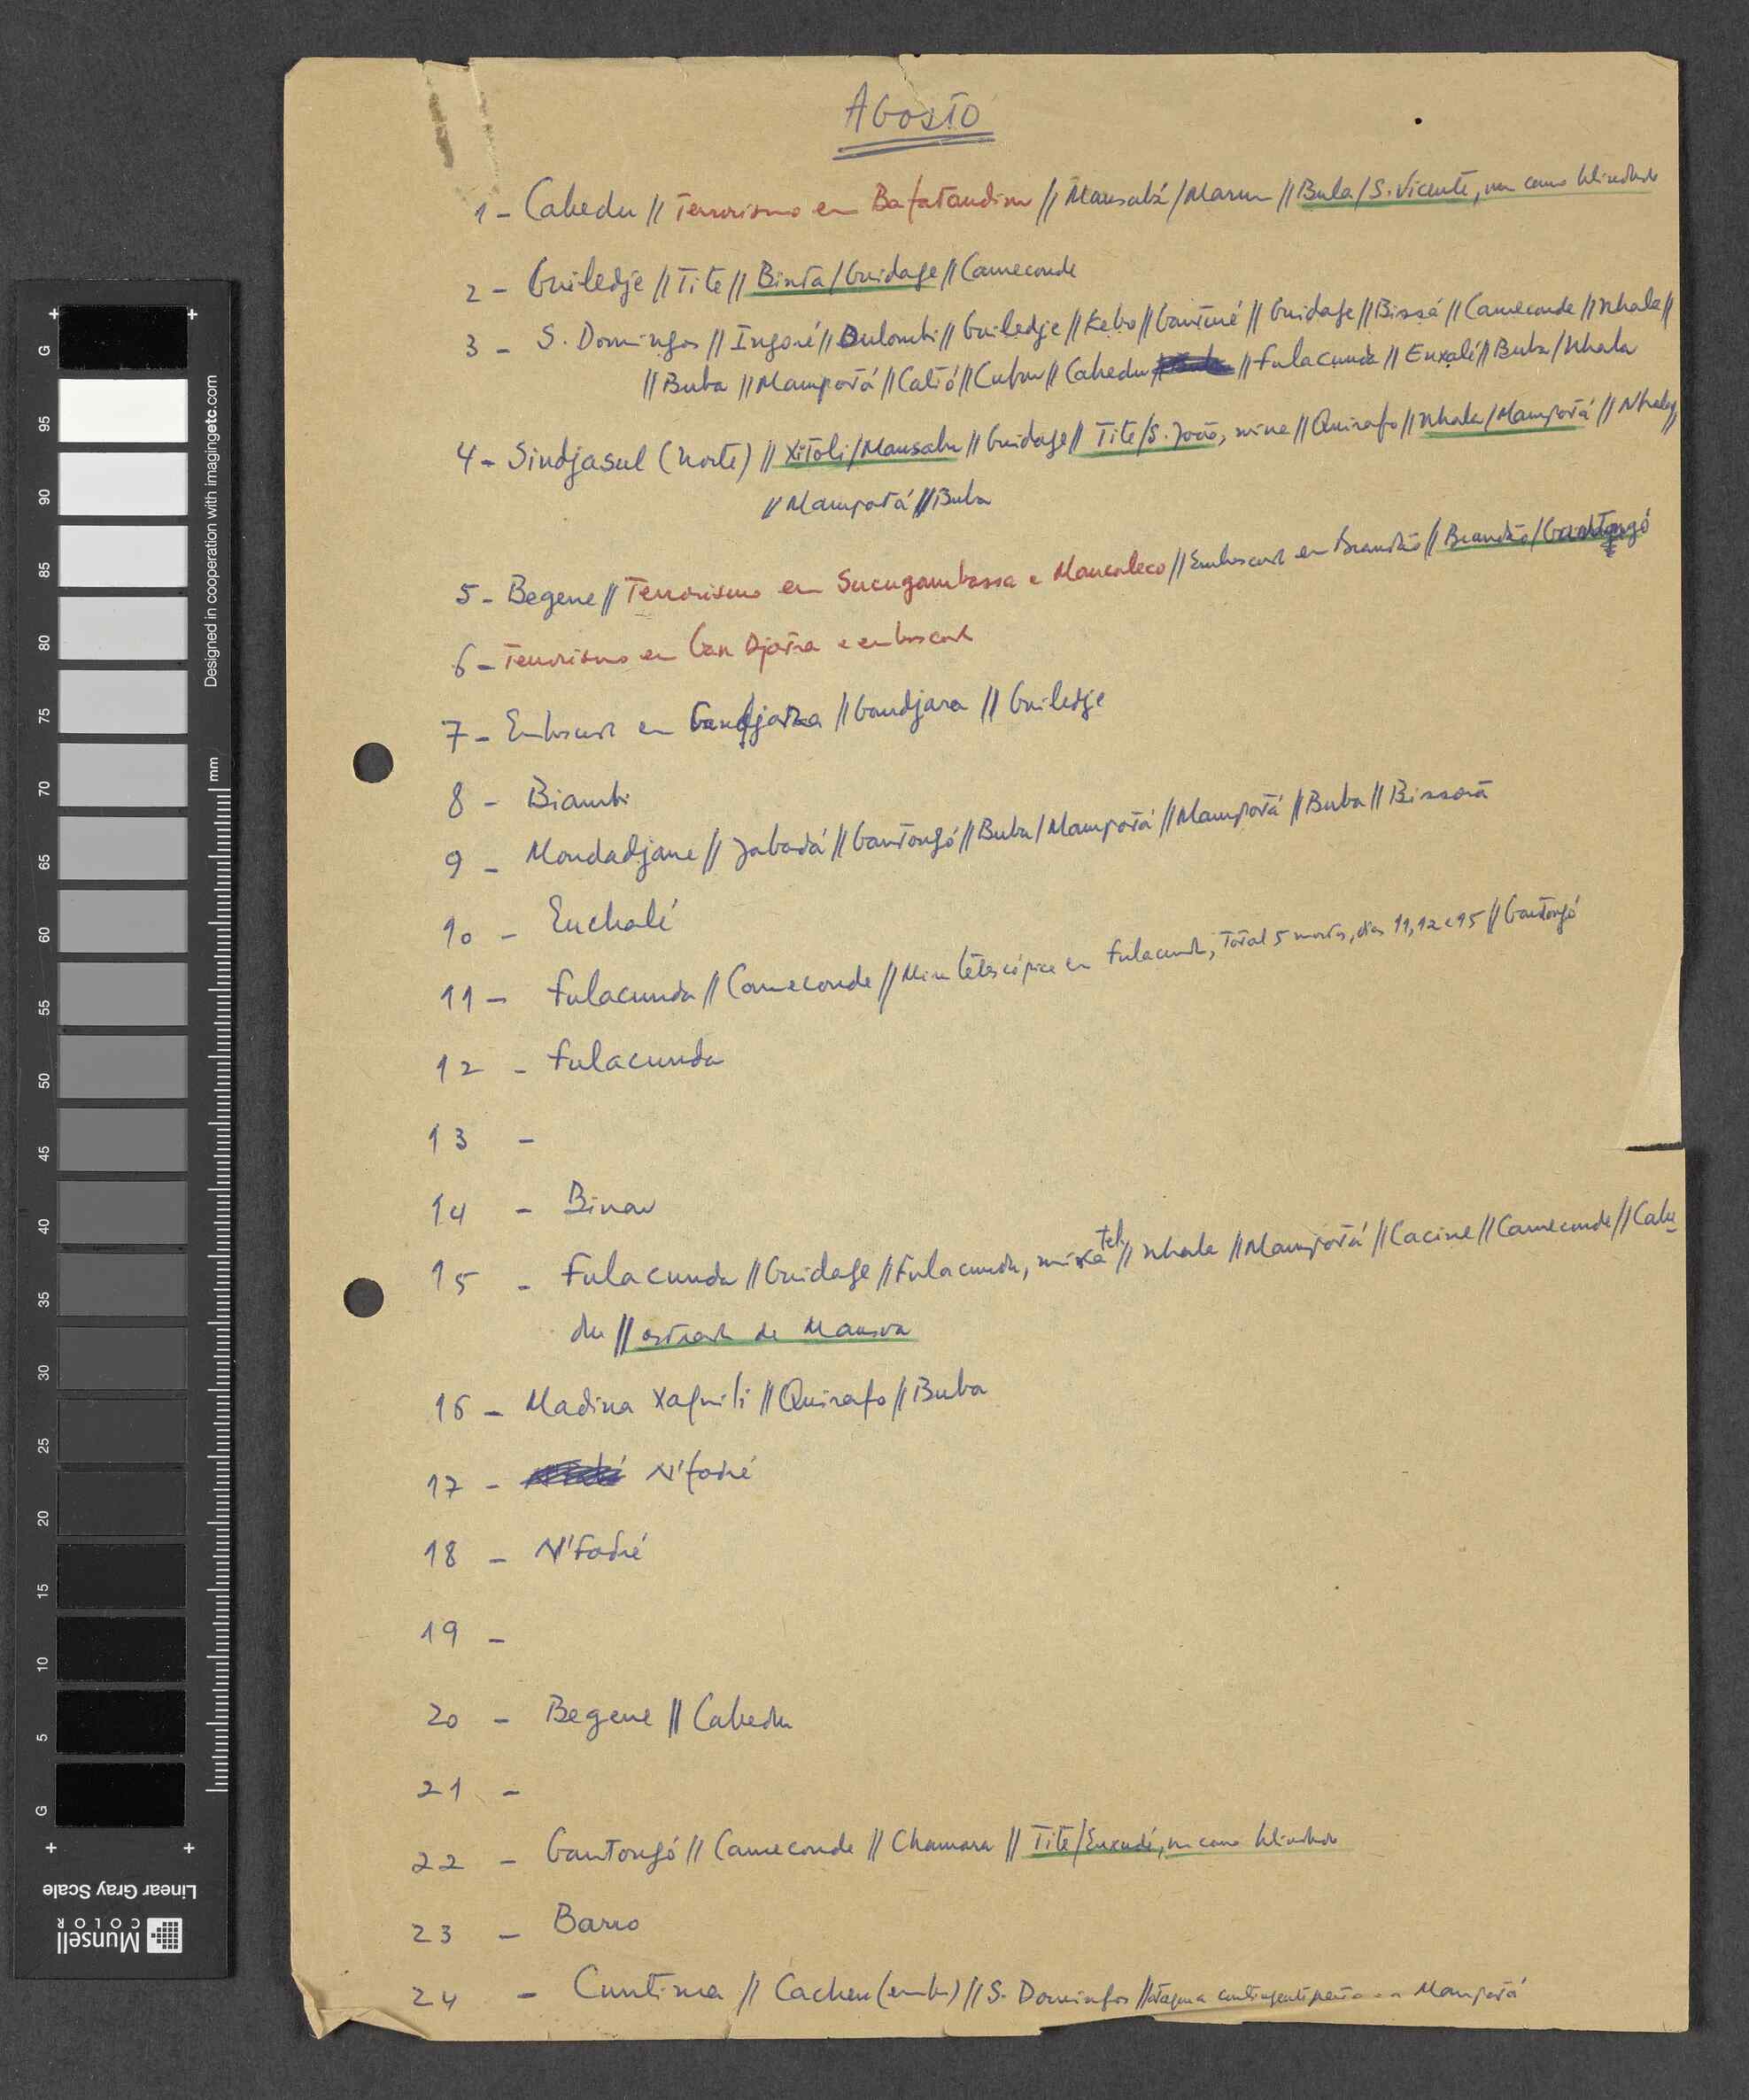 AGOSTO
1 - Cabedu // Terrorismo em Bafatandim // Mansabá/Marum // Bula/S. Vicente, um carro blindado
2 - Guiledje // Tite // Binta/Guidage // Cameconde
3 - S. Domingos // Ingoré // Dulombi // Guiledje // Kebo // Gantuné // Guidage // Bissá // Cameconde // Nhala //
// Buba // Mampatá // Catió // Cufar // Cabedu // Fulacunda // Enxalé // Buba/Nhala
4 - Sindjasul (Norte) // Xitoli/Mansabu // Guidage // Tite/S. João, mine // Quirafo // Nhala/Mampatá // Nhala //
// Mampatá // Buba
5 - Begene // Terrorismo em Sucugambassa e Mancaleco // Emboscada em Brandão // Brandão/Gantongó
6 - Terrorismo em Can Djatra e emboscada
7 - Emboscada em // Gandjara // Guiledje
8 - Biambi
9 - Mondadjane // Jabadá // Gantongó // Buba/Mampatá // Mampatá // Buba // Bissorã
10 - Enchalé
11 - Fulacunda // Cameconde // Mina telescópica em Fulacunda, total 5 mortos, dias 11, 12 e 15 // Gantongó
12 - Fulacunda
13 -
14 - Binar
15 - Fulacunda // Guidage // Fulacunda, mina tel. // Nhala // Mampatá // Cacine // Cameconde // Cabe-
du // estrada de Mansoa
16 - Madina Xaquili // Quirafo // Buba
17 - N'fodré
18 - N'fodré
19 -
20 - Begene // Cabedu
21 -
22 - Gantongó // Cameconde // Chamara // Tite/Enxudé, um carro blindado
23 - Barro
24 - Cuntima // Cacheu (emb) // S. Domingos // Mampatá
G
95
90
85
80
75
70
65
60
55
50
45
40
35
30
25
20
15
10
5
G
mm
Designed in cooperation with imagingetc.com
Linear Gray Scale
Munsell
COLOR